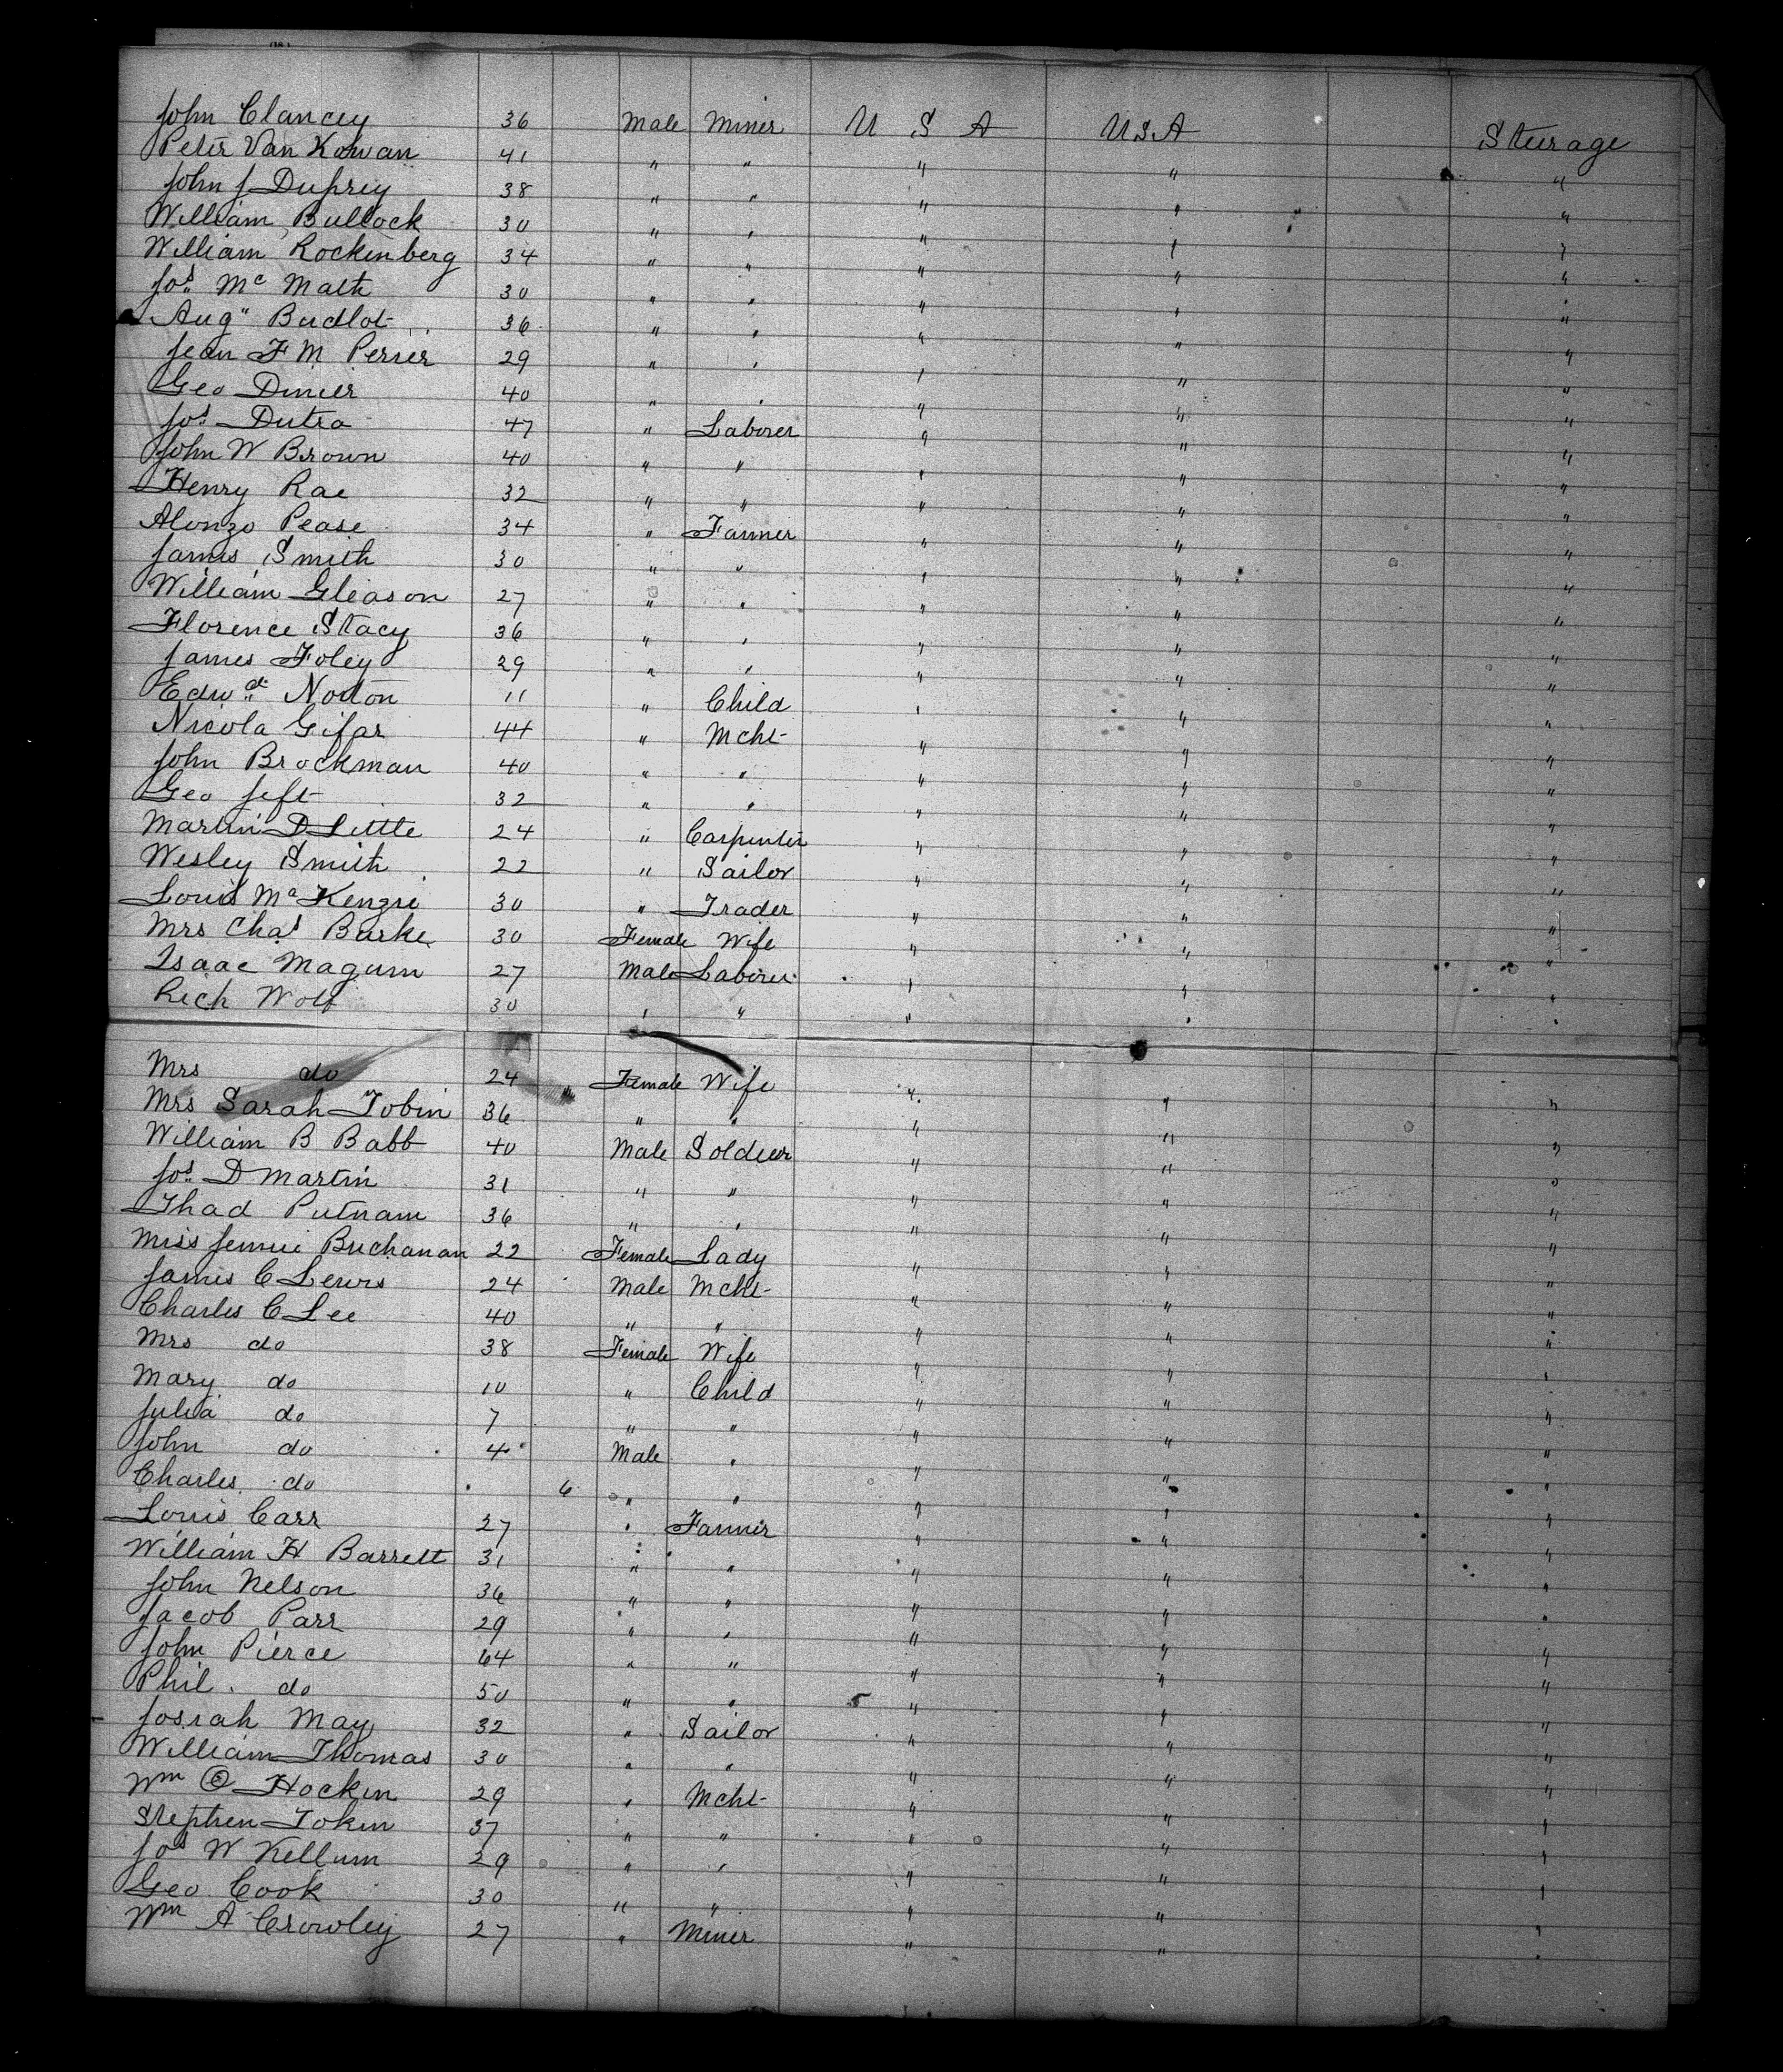 John Clancey 36 Male Miner U S A USA Steerage
Peter Van Kowan 41 " " " " "
John J Duprey 38 " " " " "
William Bullock 30 " " " " "
William Rockenberg 34 " " " " "
Jos. Mc Math 30 " " " " "
Aug" Budlot 36 " " " " "
Jean F M Perrer 29 " " " " "
Geo Dimer 40 " " " " "
Jos Dutra 47 " Laborer " " "
John W Brown 40 " " " " "
Henry Rae 32 " " " " "
Alonzo Pease 34 " Farmer " " "
James Smith 30 " " " " "
William Gleason 27 " " " " "
Florence Stacy 36 " " " " "
James Foley 29 " " " " "
Edwd Norton 11 " Child " " "
Nicola Gifar 44 " Mcht " " "
John Brockman 40 " " " " "
Geo Jeft 32 " " " " "
Martin D Little 24 " Carpenter " " "
Wesley Smith 22 " Sailor " " "
Louis McKenzie 30 " Trader " " "
Mrs Chas Burke 30 Female Wife " " "
Isaac Magum 27 Male Laborer " " "
Rich Wolf 30 " " " " "
Mrs do 24 Female Wife " " "
Mrs Sarah Tobin 36 " " " " "
William B Babb 40 Male Soldier " " "
Jos D Martin 31 " " " " "
Thad Putnam 36 " " " " "
Miss Jennie Buchanan 22 Female Lady " " "
James C Lewis 24 Male Mcht " " "
Charles C Lee 40 " " " " "
Mrs do 38 Female Wife " " "
Mary do 10 " Child " " "
Julia do 7 " " " " "
John do 4 Male " " " "
Charles do 6 " " " " "
Louis Carr 27 " Farmer " " "
William H Barrett 31 " " " " "
John Nelson 36 " " " " "
Jacob Parr 29 " " " " "
John Pierce 64 " " " " "
Phil. do 50 " " " " "
Josiah May 32 " Sailor " " "
William Thomas 30 " " " " "
Wm Hockin 29 " Mcht " " "
Stephen Tokin 37 " " " " "
Jos W Kellum 29 " " " " "
Geo. Cook 30 " " " " "
Wm A Crowley 27 " Miner " " "